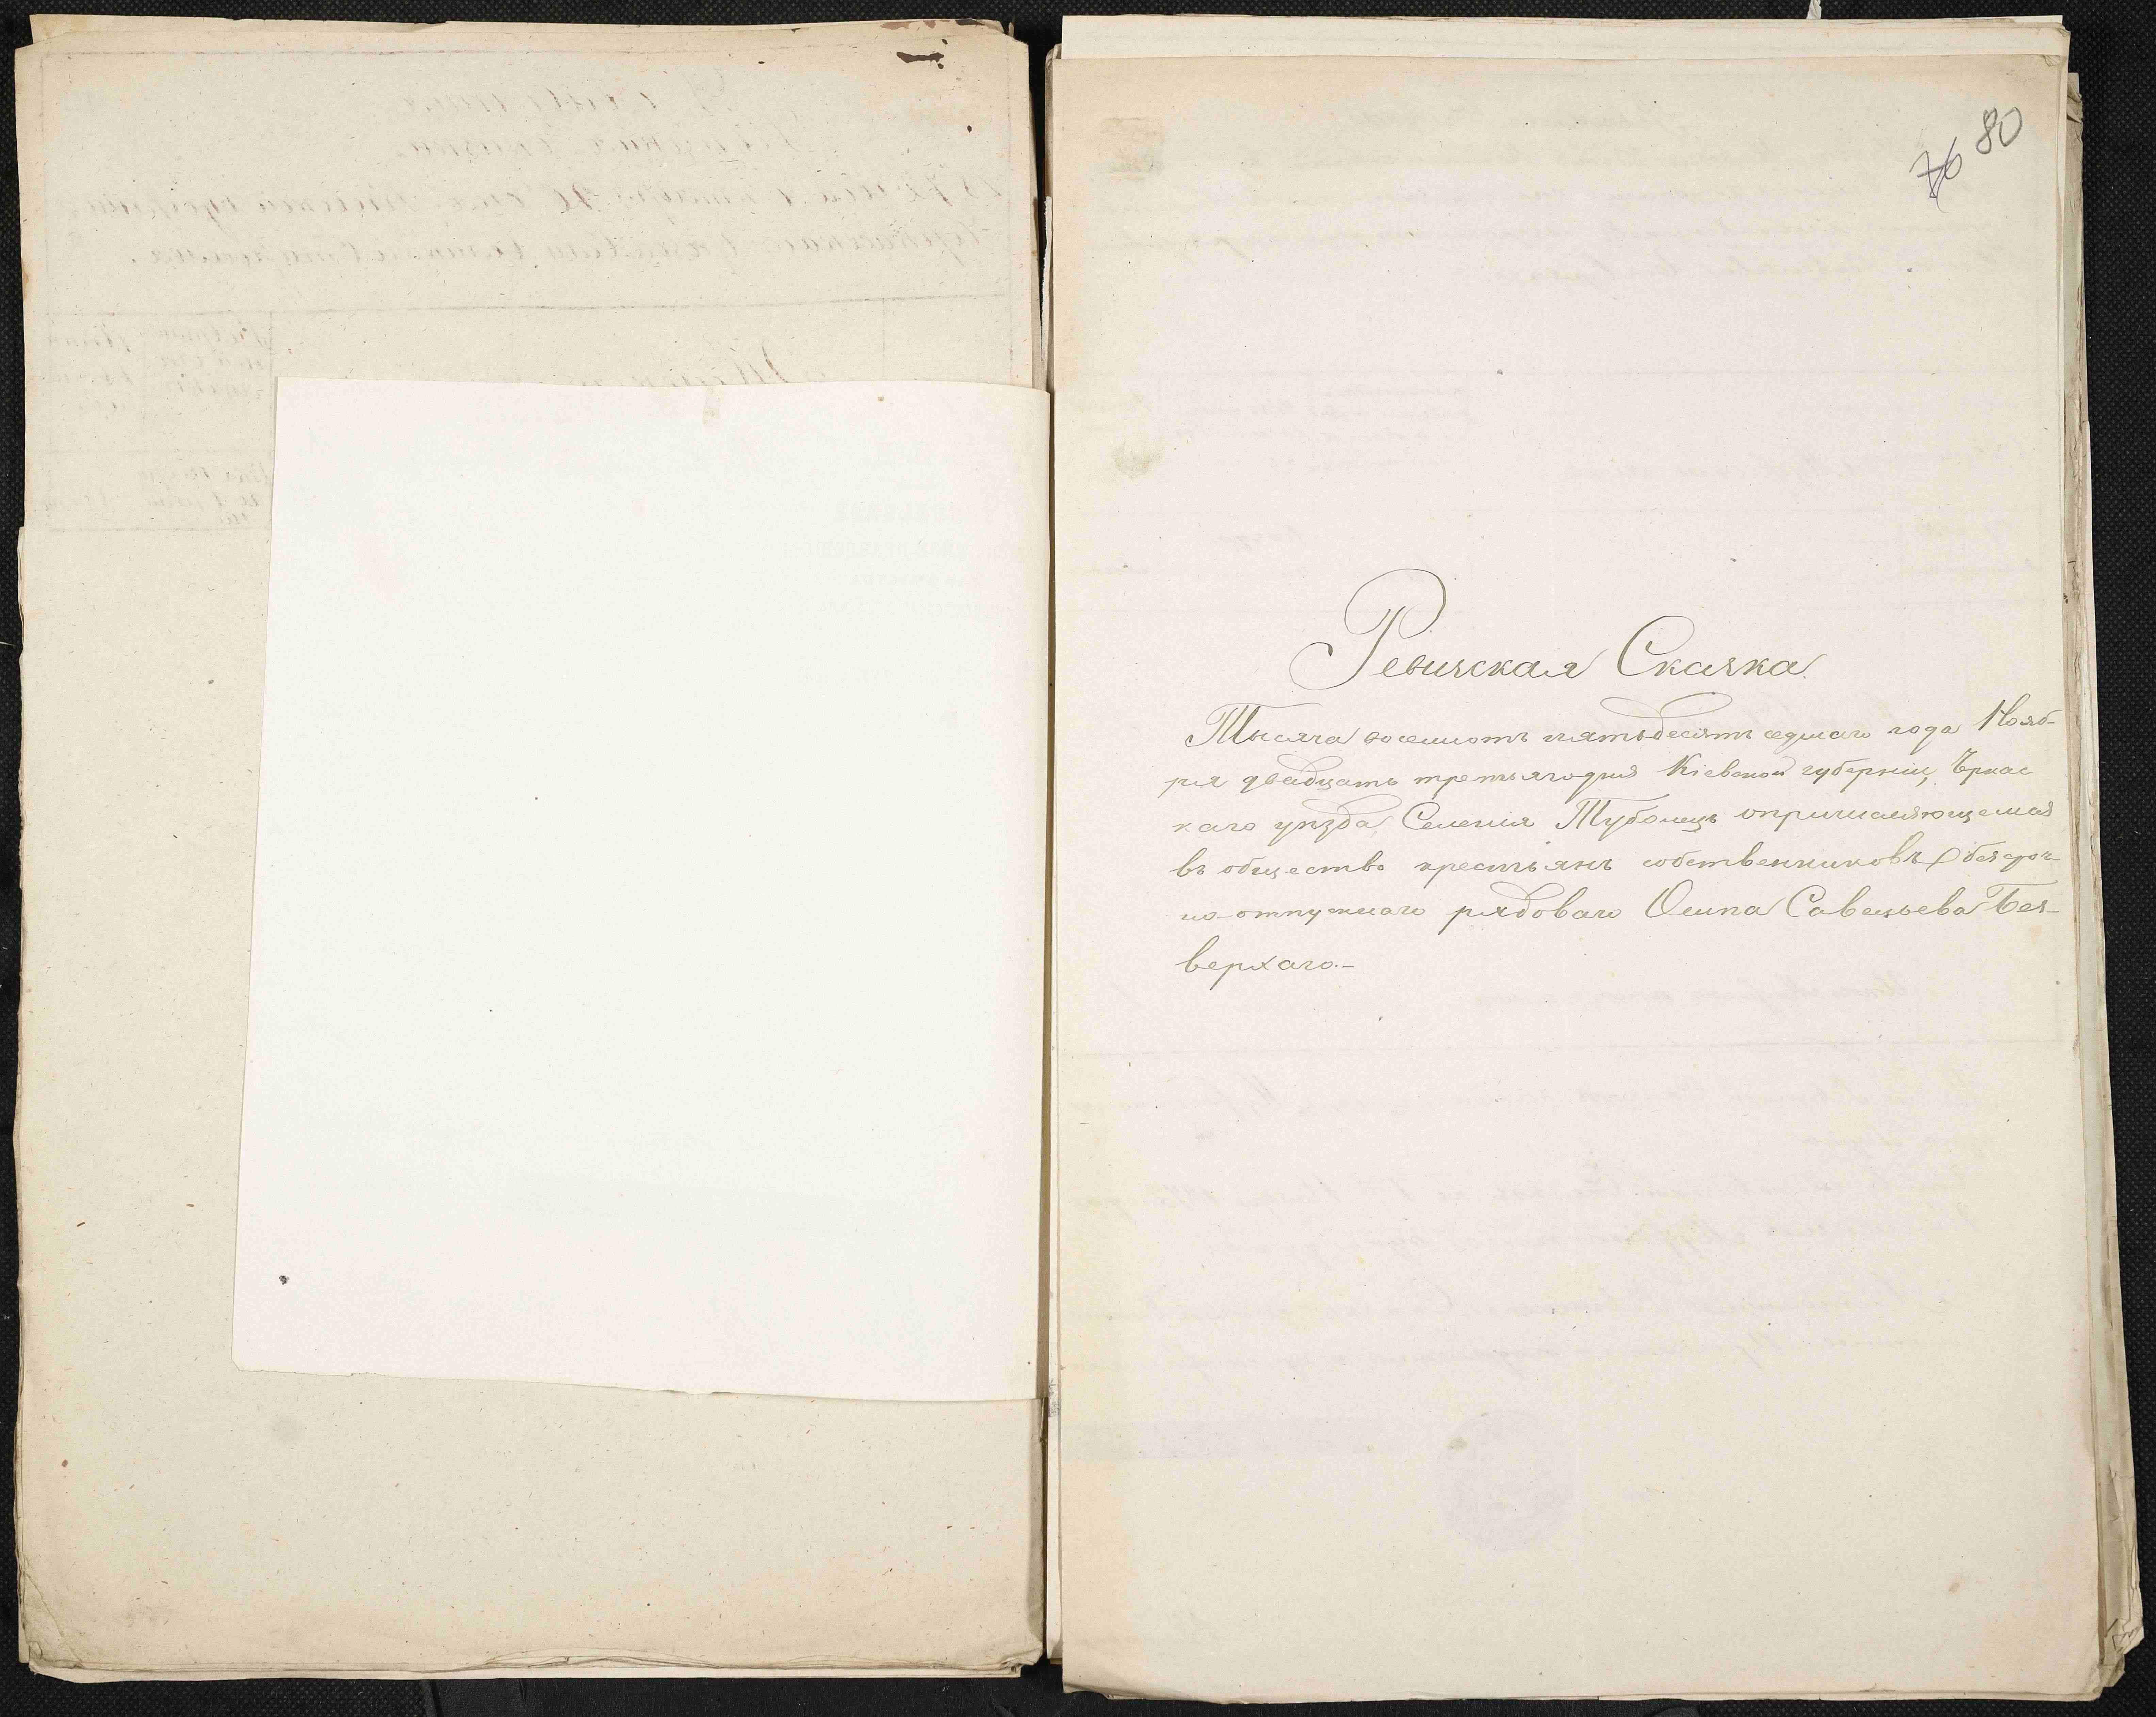 76 80
Ревизская Сказка
Тысяча восемсотъ пятьдесятъ седмаго года Нояб-
ря двадцать третьягодня Кіевской губерніи, Чркас
каго уѣзда Селенія Тубонецъ опричисляющемся
въ общество крестьянъ собственниковъ безсроч-
но-отпускнаго рядоваго Осипа Савельева Без-
верхаго.-